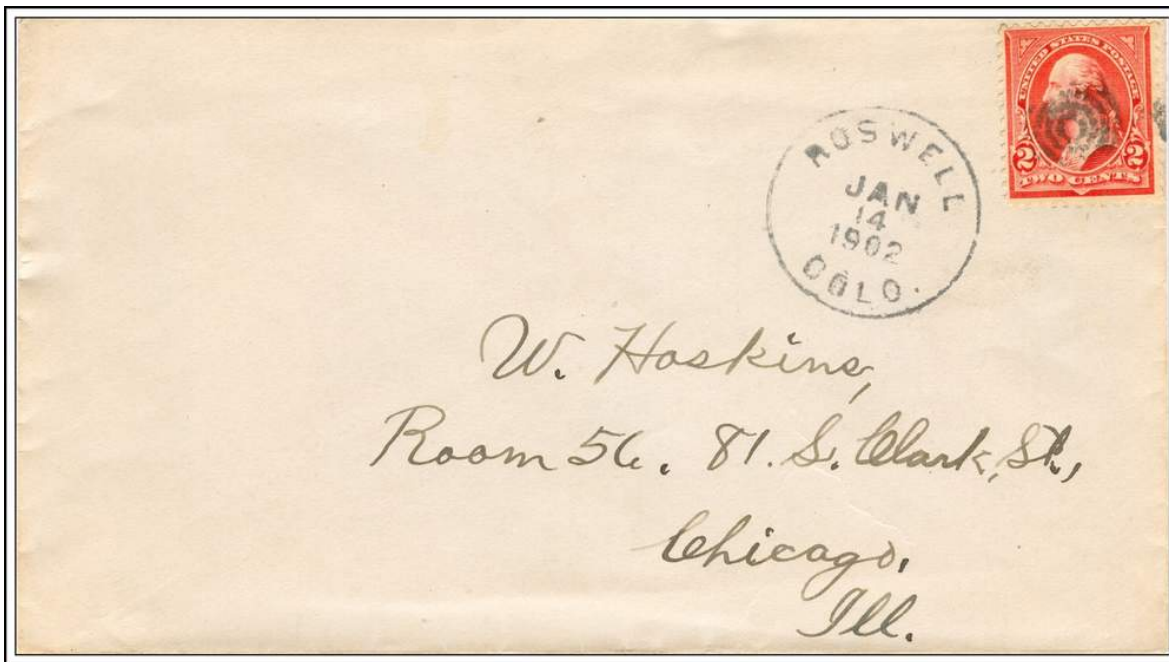 UNITED STATES POSTAGE
2 2
TWO CENTS
ROSWELL
JAN
14
1902
COLO.
W. Hoskins,
Room 56. 81. S. Clark, St.,
Chicago,
Ill.